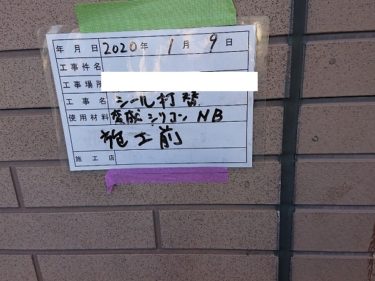 年月日 2020年 1月 9日
工事件名
工事場所
工事名 シール打替
使用材料 変成シリコン NB
施工前
施工店